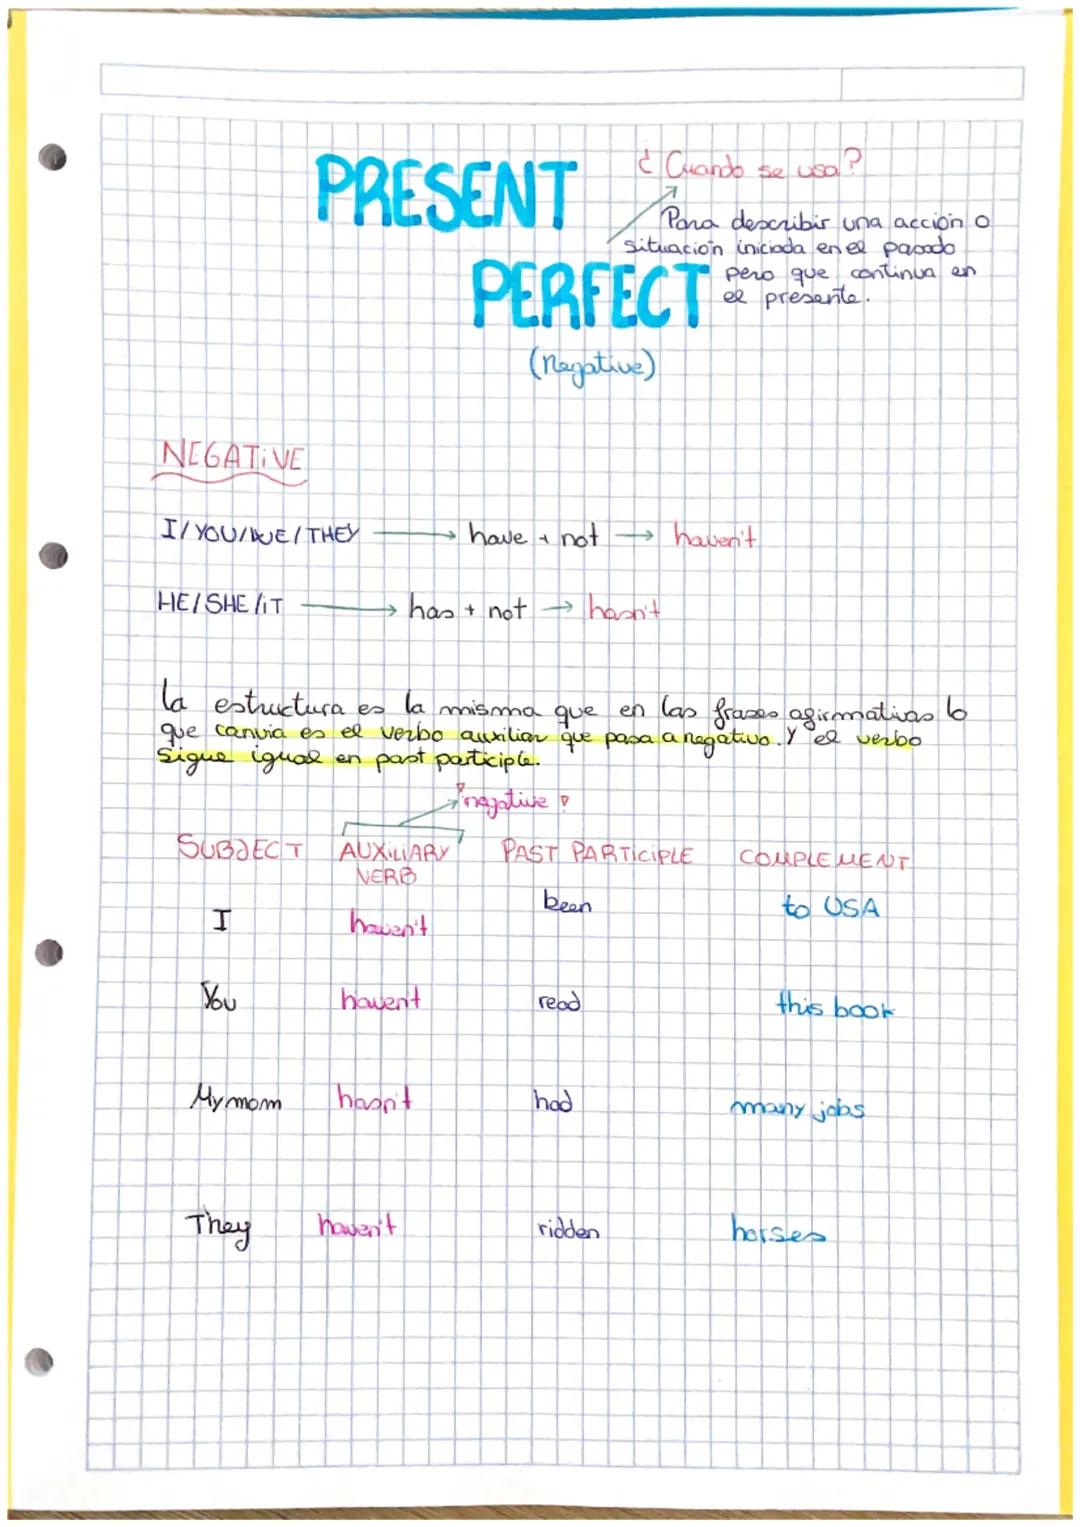 PRESENT
¿Cuando se usa?
Para describir una acción o
situación iniciada en el pasado
PERFECT
pero que continua en
el presente.
(Negative)
NEGATIVE
I/YOU/WE/THEY → have + not → haven't
HE/SHE/iT → has + not → hasn't
la estructura es la misma que en las frases agirmativas lo
que canvia es el verbo auxiliar que pasa a negativo. Y el verbo
Sigue igual en past participle.
negative
SUBJECT AUXILIARY PAST PARTICIPLE COMPLEMENT
VERB
I haven't been to USA
You haven't read this book
My mom hasn't had many jobs
They haven't ridden horses